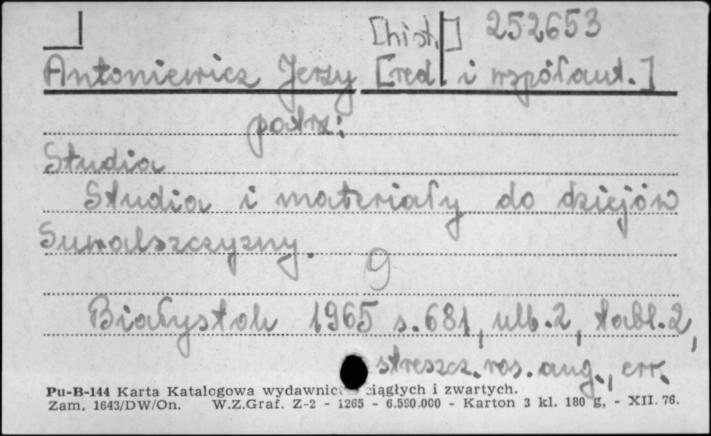 [hist.] 252653
Antoniewicz Jerzy [red. i współaut.]
patrz:
Studia
Studia i materiały do dziejów
Suwalszczyzny.
9
Białystok 1965 s. 681, ulb. 2, tabl. 2,
streszcz. ros. ang., err.
Pu-B-144 Karta Katalogowa wydawnictw ciągłych i zwartych.
Zam. 1643/DW/On. W.Z.Graf. Z-2 - 1265 - 6.590.000 - Karton 3 kl. 180 g, - XII. 76.